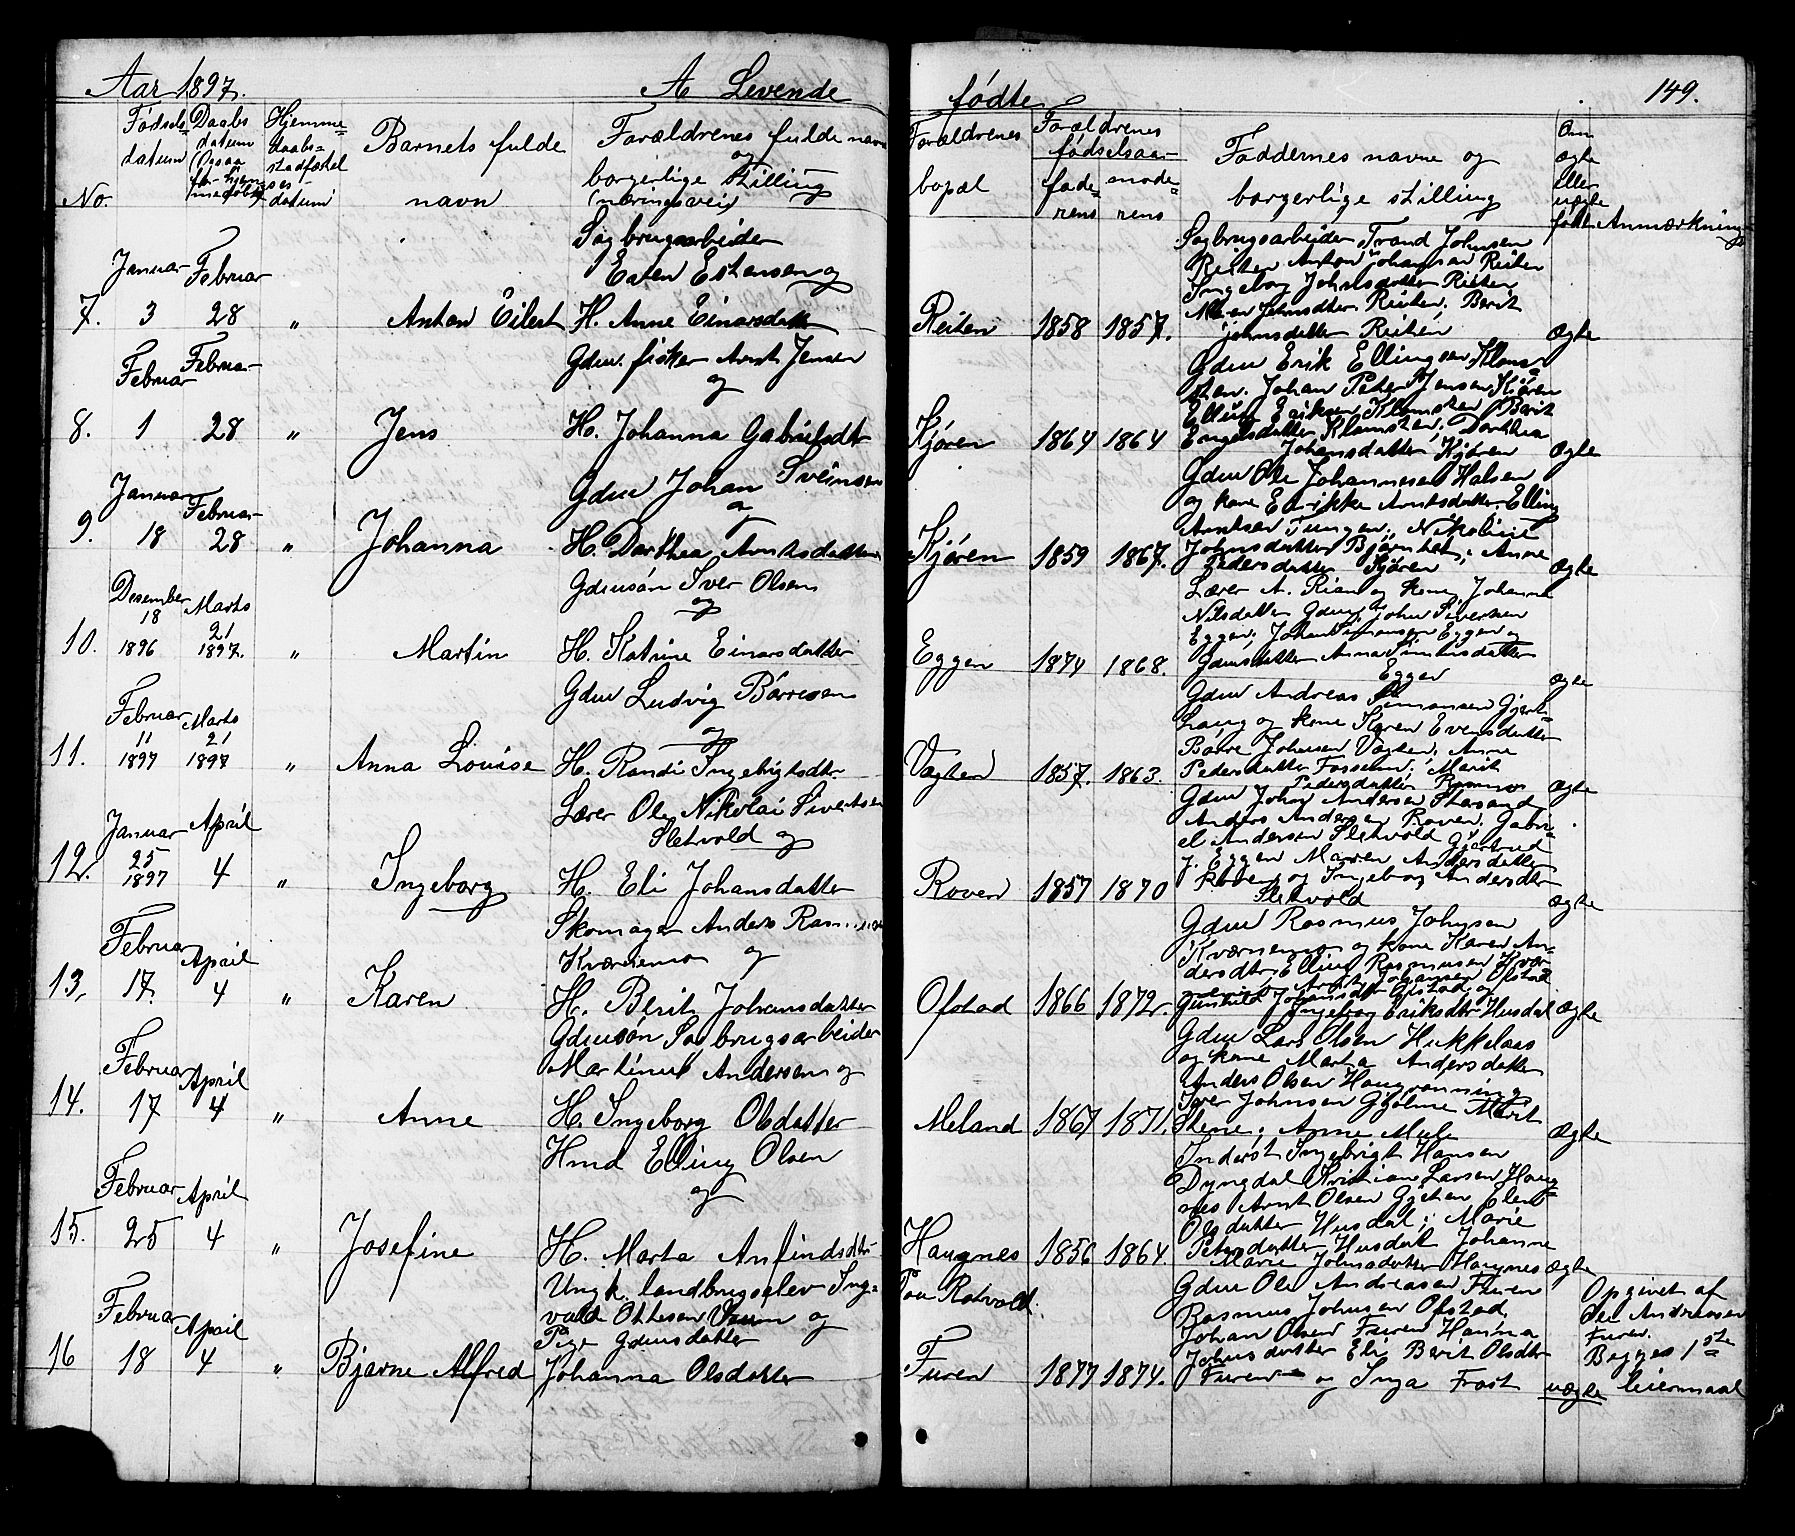 Aar 1897.
A Levende
fødte
149.
No.
Fødsels-
datum
Daabs
datum
(Ogsaa
for hjem-
medøbt)
Hjemme-
daabs-
stadfæstel
ses-
datum
Barnets fulde
navn
Forældrenes fulde navn
og
borgerlige stilling
(næringsvei)
Forældrenes
bopæl
Forældrenes
fødselsaar
fade-
rens
mode-
rens
Faddernes navne og
borgerlige stilling
Om
ægte
eller
uægte
født
Anmærkning
7.
Januar
3
Februar
28
"
Anton Eilert
Sagbrugsarbeider
Esten Estensen og
H. Anne Einarsdatter
Reiten
1858
1857.
Sagbrugsarbeider Trond Johnsen
Reiten Anton Johansen Reiten
Ingeborg Johnsdatter Reiten
Maren Johnsdtter Reiten. Berit
Johnsdatter Reiten
ægte
8.
Februar
1
Februar
28
"
Jens
Gdm. fisker Arnt Jensen
og
H. Johanna Gabrielsdtr
Kjøren
1864
1864
Gdm Erik Ellingsen Klam-
sten. Johan Peter Jensen Kjøren
Elling Eriksen Klamsten Berit
Engelsdatter Klamsten, Dorthea
Johansdatter Kjøren
ægte
9.
Januar
18
Februar
28
"
Johanna
Gdm Johan Sveinsen
og
H. Dorthea Arntsdatter
Kjøren
1859
1867.
Gdm Ole Johannesen Halsen
og kone Enrikke Arntsdatter. Elling
Arntsen Tungen, Nikoline
Johnsdatter Bjørnbet; Anne
Pedersdatter Kjøren
ægte
10.
Desember
18
1896
Marts
21
1897.
"
Martin
Gdmsøn Iver Olsen
og
H. Katrine Einarsdatter
Eggen
1874
1868.
Lærer A. Rian og kone Johanna
Nilsdatter Gdm John Sivertsen
Eggen; Johan Simonsen Eggen og
Gdmsdatter Anna Simonsdatter
Eggen
ægte
11.
Februar
11
1897
Marts
21
1897
"
Anna Lovise
Gdm Ludvig Børresen
og
H. Randi Ingebrigtsdtr.
Vagten
1857.
1863.
Gdm Andreas Simonsen Gjert-
laug og kone Karen Evensdatter
Børre Johnsen Vagten; Anne
Pedersdatter Fossum; Marit
Pedersdatter
ægte
12.
Januar
25
1897
April
4
"
Ingeborg
Lærer Ole Nikolai Sivertsen
Sletvold og
H. Eli Johansdatter
Roven
1857
1870
Gdm John Andersen
Anders Andersen Roven. Gabri-
el Andersen Sletvold Gjertrud
J. Eggen Maren Andersdatter
Roven og Ingeborg Andersdtr
Sletvold
ægte
13.
Februar
17.
April
4
"
Karen
Skomager Anders
Kværnemo og
H. Berit Johansdatter
Ofstad
1866
1872.
Gdm Rasmus Johnsen
Kværnemo og kone Karen An-
dersdtr. Elling Rasmusen Kvær-
nemo Arnt Johansen Ofstad
Gunhild Johansdtr Ofstad og
Ingeborg Eriksdtr Husdal
ægte
14.
Februar
17
April
4
"
Anne
Gdmsøn Sagbrugsarbeider
Martinus Andersen og
H. Ingeborg Olsdatter
Meland
1867
1871.
Gdm Lars Olsen Hukkelaas
og kone Marta Andersdatter
Anders Olsen Haugrønning
Iver Johnsen Gjølme Marit
Stene; Anne Mele
ægte
15.
Februar
25
April
4
"
Josefine
Hmd Elling Olsen
og
H. Marta Anfindsdtr
Haugnes
1856
1864.
Inderst Ingebrigt Hansen
Dyngdal Kristian Larsen Haug-
nes Arnt Olsen Gjeten Elen
Olsdatter Husdal; Marie
Petersdatter Husdal Johanne
Marie Johnsdatter Haugnes
ægte
16
Februar
18
April
4
"
Bjarne Alfred
Ungk. landbrugselev Ing-
vald Ottesen og
Pige Gdmsdatter
Johanna Olsdatter
Paa Rotvold.
Furen
1877
1874.
Gdm Ole Andreasen Furen
Rasmus Johnsen Ofstad
Johan Olsen Furen Hanna
Johnsdatter Eli Berit Olsdtr
Furen og Inga Frost
uægte
Opgivet af
Ole Andreasen
Furen.
Begges 1ste
leiermaal